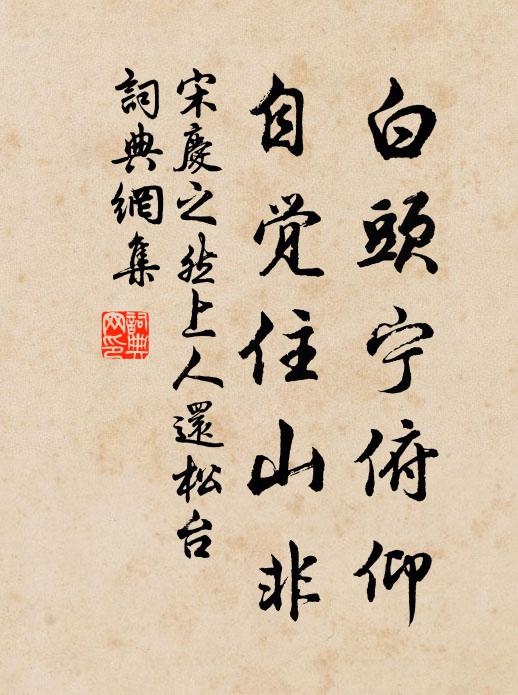 白頭宁俯仰
自觉住山非
宋慶之然上人還松台
詞典網集
詞典網印